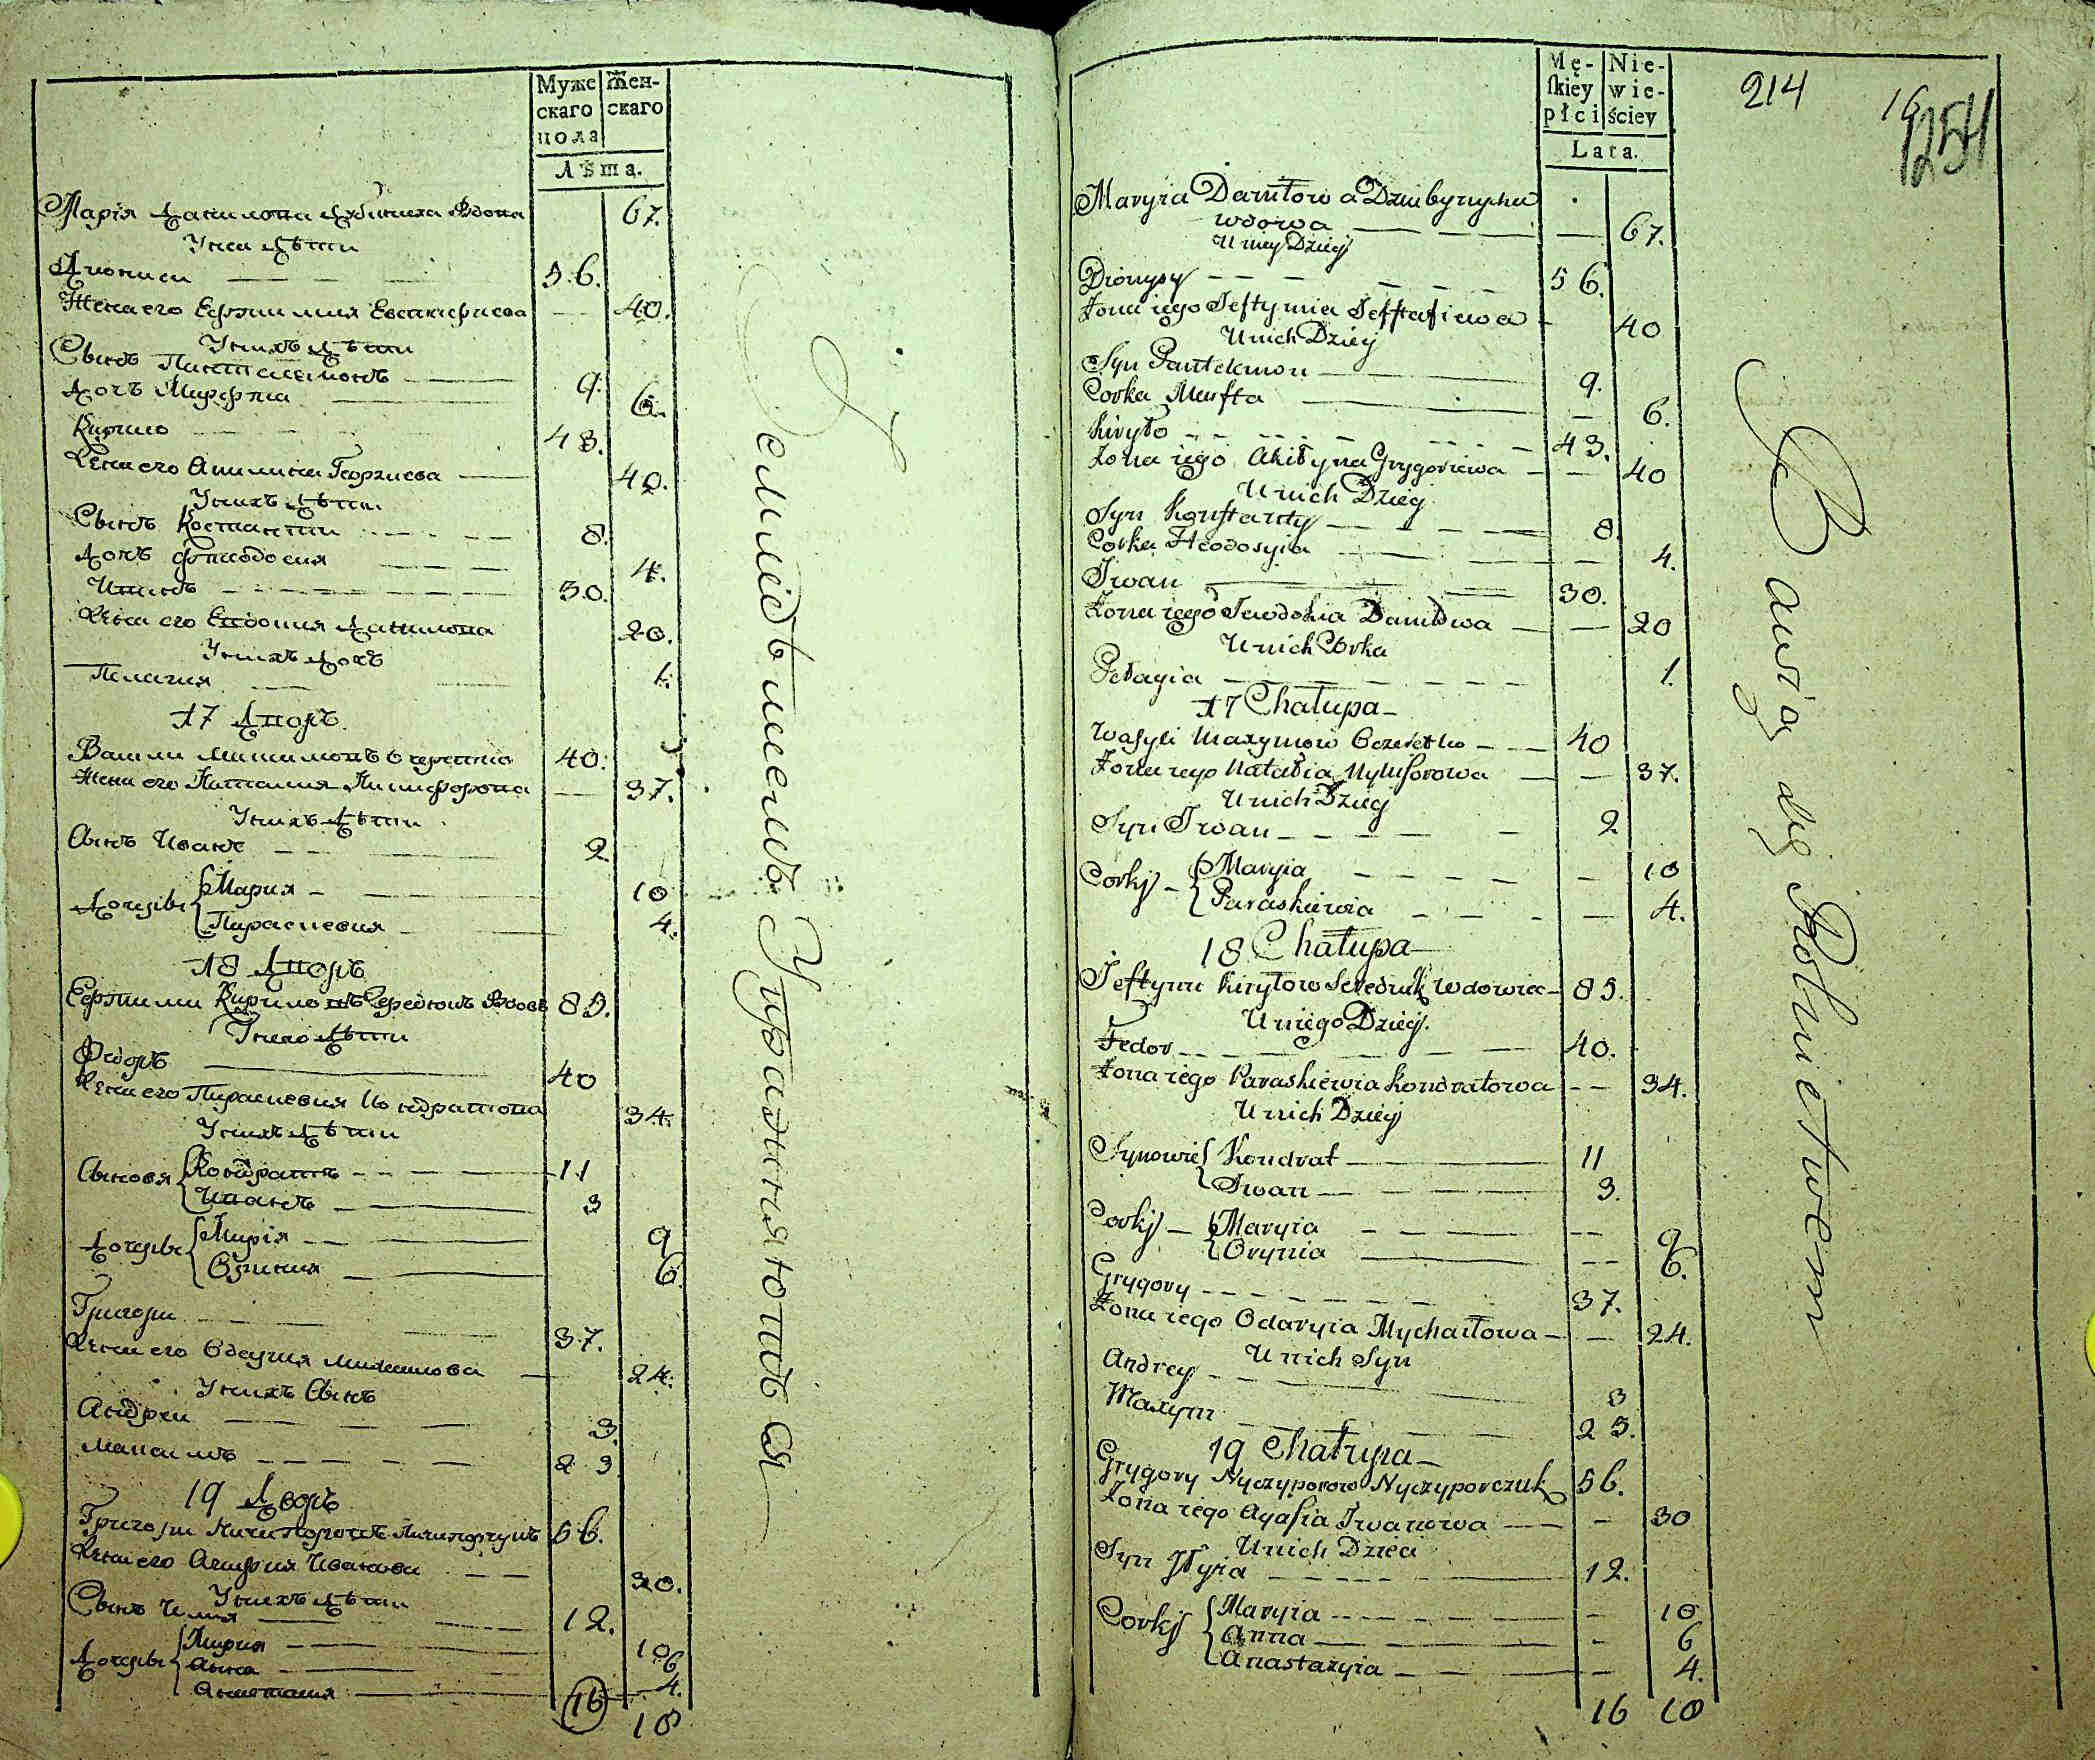 Муже
скаго
пола
Жен-
скаго
Лѣта.
Марія Данилова вдова 67.
У неи дѣти
Диониси 56.
Жена его Ефтимия Евстафиева 40.
У нихъ дѣти
Сынъ Пантелемонъ 9.
Дочь Марфта 6.
Кирило 43.
Жена его Акилина Георгиева 40.
У нихъ дѣти
Сынъ Костанти 8.
Дочь Феодосия 4.
Иванъ 30.
Жена его Евдокия Данилова 20.
У нихъ дочь
Пелагия 1.
17 Дворъ
Васили Максимовъ Очеретко 40.
Жена его Наталия Никифорова 37.
У нихъ дѣти
Сынъ Иванъ 2
Дочери Мария 10
Параскевия 4.
18 Дворъ
Ефтими Кириловъ Середюкъ вдовъ 85.
У него дѣти
Федоръ 40
Жена его Параскевия Кондратова 34.
У нихъ дѣти
Сыновя Кондратъ 11
Иванъ 3
Дочери Марія 9
Орина 6.
Григори 37.
Жена его Одария Михаилова 24.
У нихъ Сынъ
Андреи 3.
Максимъ 23
19 Дворъ
Григори Ничипоровъ Ничипорчукъ 56.
Жена его Агафия Иванова 30.
У нихъ дѣти
Сынъ Илия 12.
Дочери Мария 10
Анна 6
Анастасия 4.
16 18
Земледѣлиемъ Упражняются
Mę-
skiey
płci
Nie-
wie-
ściey
Lata.
214
16
254
Maryia Daniłowa
wdowa 67.
U niey Dzieÿ
Dionyzy 56.
Żona iego Jeftymia Jefstafiewa 40
U nich Dzieÿ
Syn Pantelemon 9.
Corka Marfta 6.
Kiryło 43.
Żona iego Akiłyna Grygoriewa 40
U nich Dzieÿ
Syn Konstanty 8
Corka Fteodosyia 4.
Iwan 30.
Żona iego Jewdokia Daniłowa 20
U nich Corka
Pełagia 1.
17 Chałupa
Wasyli Maxymow Oczeretko 40
Żona iego Natalia Nykiforowa 37.
U nich Dzieÿ
Syn Iwan 2.
Corkÿ Maryia 10
Paraskiewia 4.
18 Chałupa
Jeftymi Kiryłow Sereduk Wdowiec 85.
U niego Dzieÿ.
Fedor 40.
Żona iego Paraskiewia Kondratowa 34.
U nich Dzieÿ
Synowie Kondrat 11
Iwan 3.
Corkÿ Maryia 9
Orynia 6.
Grygory 37.
Żona iego Odaryia Mychaiłowa 24.
U nich Syn
Andrey 3
Maxym 23.
19 Chałupa
Grygory Nyczyporow Nyczyporczuk 56.
Żona iego Agafia Iwanowa 30
U nich Dzieci
Syn Jłyia 12.
Corkÿ Maryia 10
Anna 6
Anastazyia 4.
16 18
Bawią się Rolnictwem